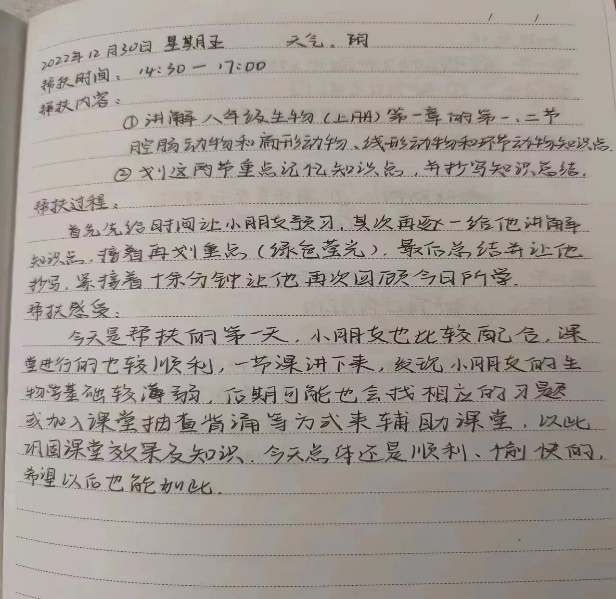 2022年12月30日 星期五 天气：阴
帮扶时间：14:30—17:00
帮扶内容：
①讲解八年级生物（上册）第一章的第一、二节
腔肠动物和扁形动物、线形动物和环节动物知识点.
②划这两节重点记忆知识点，并抄写知识总结.
帮扶过程：
首先先给时间让小朋友预习，其次再逐一给他讲解
知识点，接着再划重点（绿色荧光），最后总结并让他
抄写，紧接着十余分钟让他再次回顾今日所学.
帮扶感受：
今天是帮扶的第一天，小朋友也比较配合，课
堂进行的也较顺利，一节课讲下来，发现小朋友的生
物学基础较薄弱，后期可能也会找相应的习题
或加入课堂抽查背诵等方式来辅助课堂，以此
巩固课堂效果及知识.今天总体还是顺利、愉快的，
希望以后也能如此.